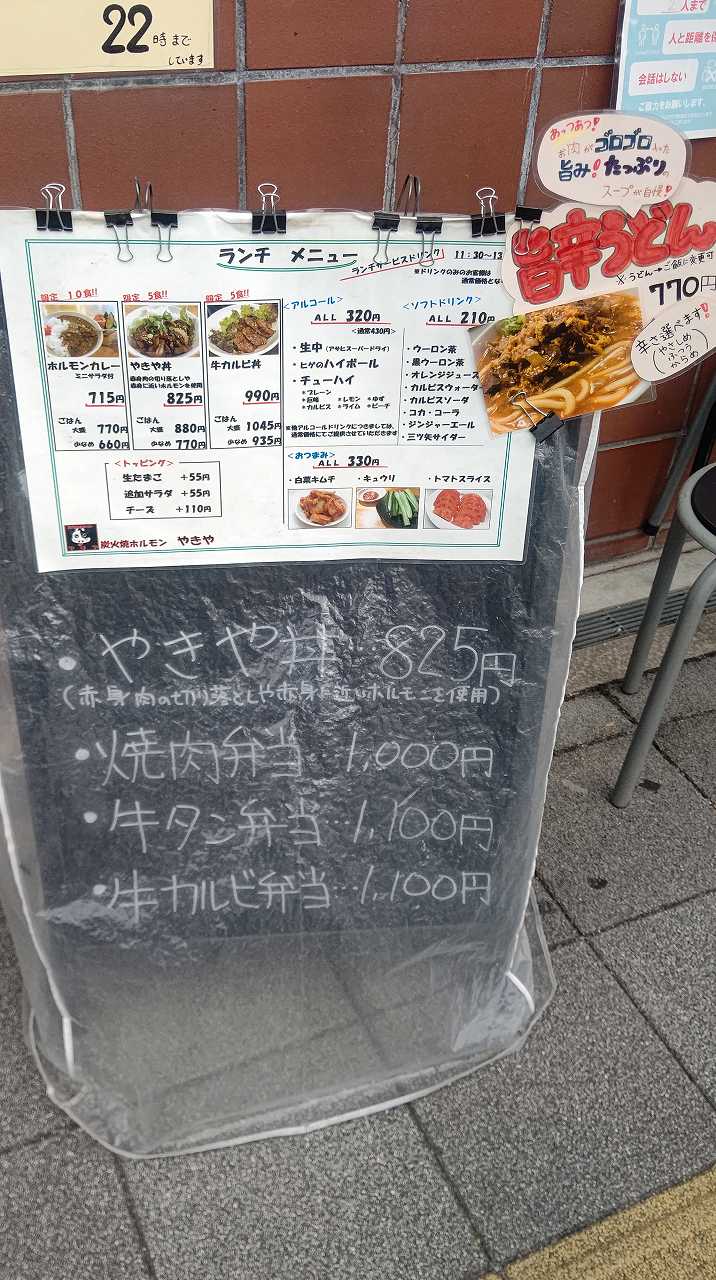 22時まで
しています
人まで
人と距離を
会話はしない
ご協力をお願いします。
あっつあつ!
お肉がゴロゴロ
旨み!たっぷりの
スープが自慢!
旨辛うどん
※うどん→ご飯に変更可
770円
辛さ選べます!
(やさしめ
ふつう
からめ)
ランチ メニュー
ランチサービスドリンク 11:30~13
※ドリンクのみのお客様は
通常価格とな
限定 10食!!
ホルモンカレー
ミニサラダ付
715円
ごはん
大盛 770円
少なめ 660円
限定 5食!!
やきや丼
赤身肉の切り落としや
赤身に近いホルモンを使用
825円
ごはん
大盛 880円
少なめ 770円
限定 5食!!
牛カルビ丼
990円
ごはん
大盛 1045円
少なめ 935円
<トッピング>
生たまご +55円
追加サラダ +55円
チーズ +110円
炭火焼ホルモン やきや
<アルコール>
ALL 320円
<通常430円>
・生中(アサヒスーパードライ)
・ヒゲのハイボール
・チューハイ
*プレーン
*巨峰 *レモン *ゆず
*カルピス *ライム *ピーチ
※他アルコールドリンクにつきましては、
通常価格にてご提供させていただきます
<ソフトドリンク>
ALL 210円
・ウーロン茶
・黒ウーロン茶
・オレンジジュース
・カルピスウォーター
・カルピスソーダ
・コカ・コーラ
・ジンジャーエール
・三ツ矢サイダー
<おつまみ>
ALL 330円
・白菜キムチ ・キュウリ ・トマトスライス
・やきや丼…825円
(赤身肉の切り落としや赤身に近いホルモンを使用)
・焼肉弁当 1,000円
・牛タン弁当…1,100円
・牛カルビ弁当…1,100円